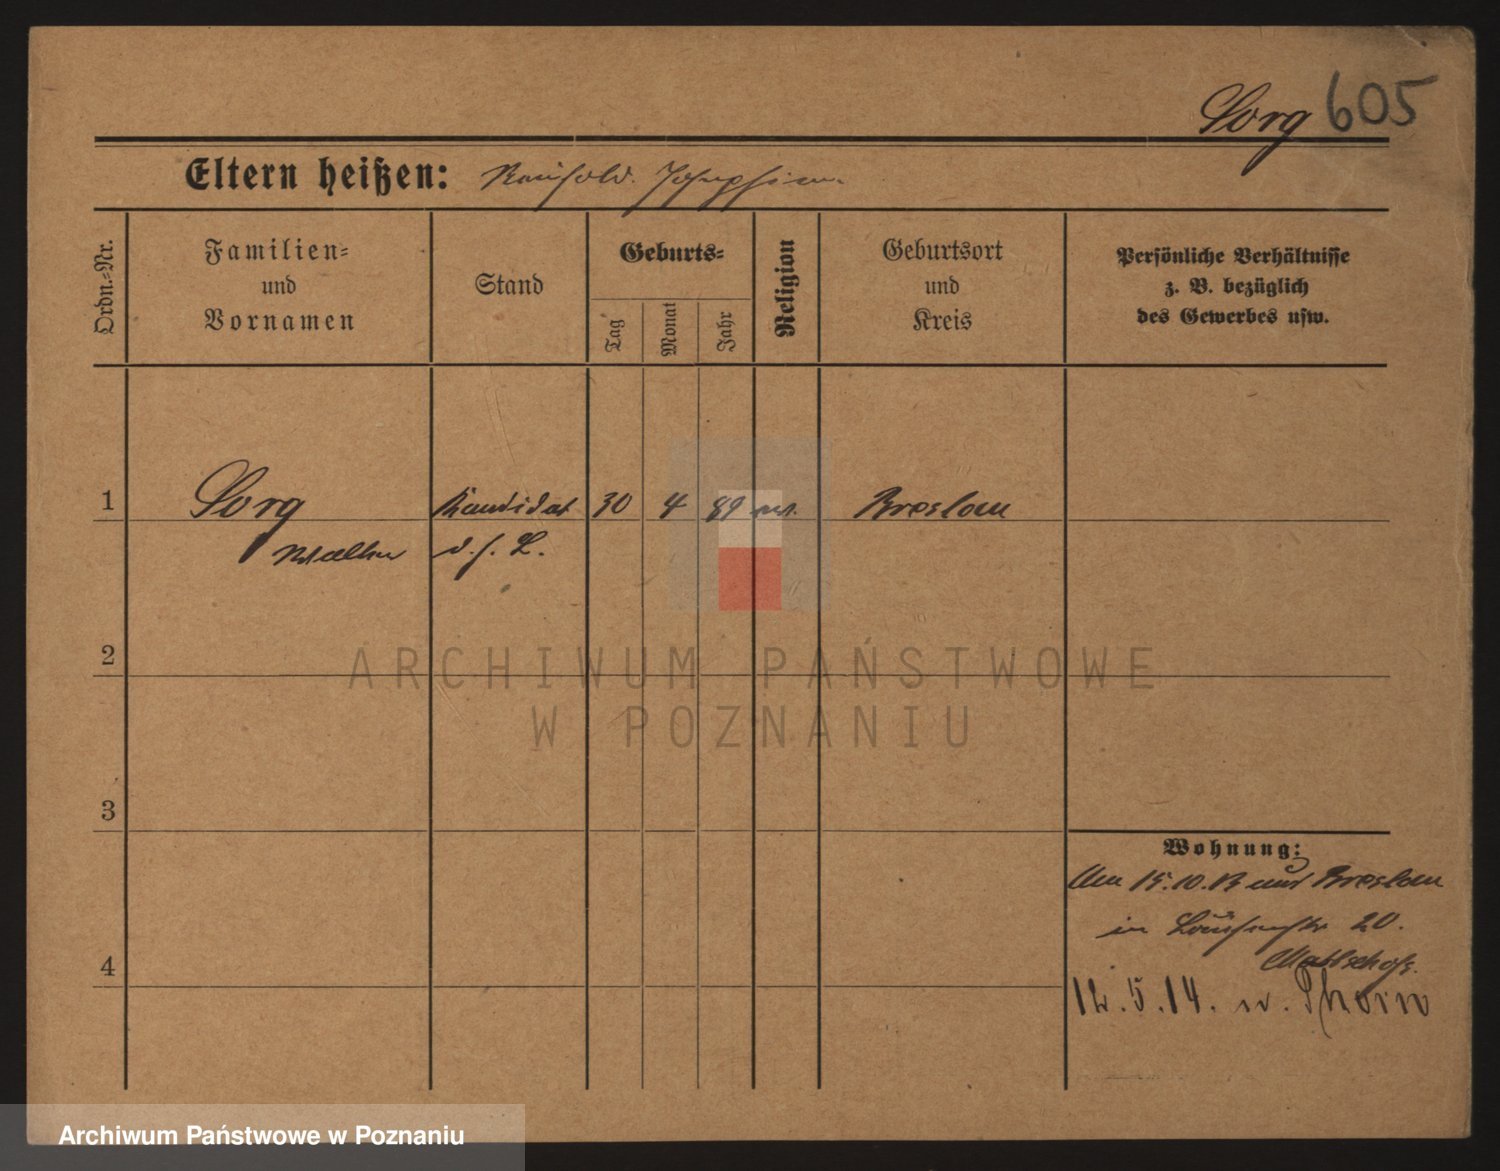 Sorg 605
Eltern heißen: Reinhold. Josephine
Ordn.-Nr.
Familien- und Vornamen
Stand
Geburts-
Tag
Monat
Jahr
Religion
Geburtsort und Kreis
Persönliche Verhältnisse z. B. bezüglich des Gewerbes usw.
1 Sorg Kandidat 30 4 89 Breslau
Walter d. h. L.
2
3
4
Wohnung:
Am 15.10.13 aus Breslau
in 20.
12.5.14. n. Thorn
ARCHIWUM PAŃSTWOWE
W POZNANIU
Archiwum Państwowe w Poznaniu